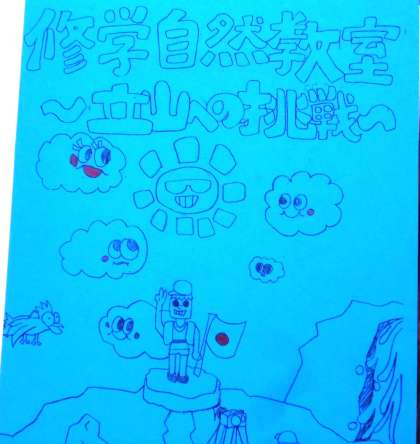 修学自然教室
〜立山への挑戦〜